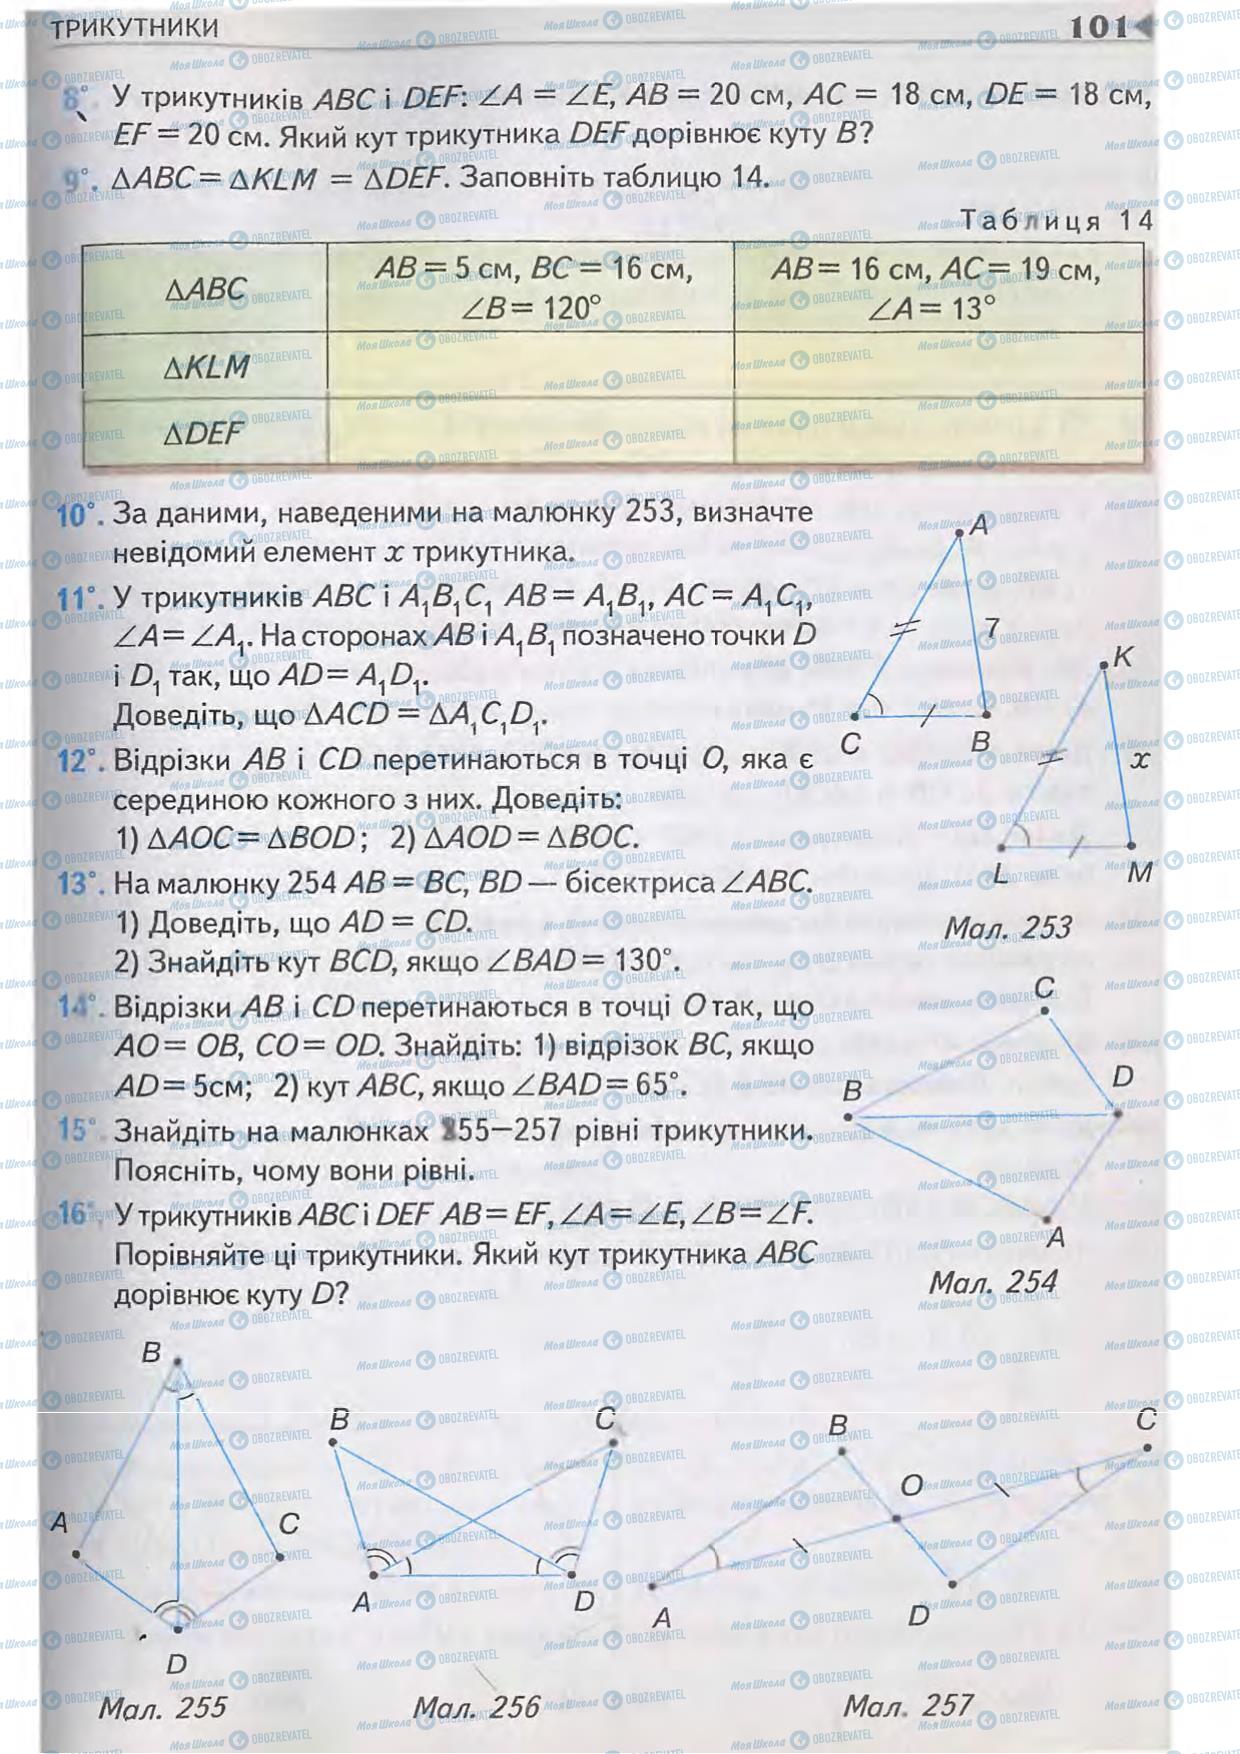 ТРИКУТНИКИ 101
8°. У трикутників ABC і DEF: ∠A = ∠E, AB = 20 см, AC = 18 см, DE = 18 см,
EF = 20 см. Який кут трикутника DEF дорівнює куту B?
9°. △ABC = △KLM = △DEF. Заповніть таблицю 14.
Таблиця 14
△ABC
AB = 5 см, BC = 16 см,
∠B = 120°
AB = 16 см, AC = 19 см,
∠A = 13°
△KLM
△DEF
10°. За даними, наведеними на малюнку 253, визначте
невідомий елемент x трикутника.
11°. У трикутників ABC і A₁B₁C₁ AB = A₁B₁, AC = A₁C₁,
∠A = ∠A₁. На сторонах AB і A₁B₁ позначено точки D
і D₁ так, що AD = A₁D₁.
Доведіть, що △ACD = △A₁C₁D₁.
12°. Відрізки AB і CD перетинаються в точці O, яка є
серединою кожного з них. Доведіть:
1) △AOC = △BOD; 2) △AOD = △BOC.
13°. На малюнку 254 AB = BC, BD — бісектриса ∠ABC.
1) Доведіть, що AD = CD.
2) Знайдіть кут BCD, якщо ∠BAD = 130°.
14°. Відрізки AB і CD перетинаються в точці O так, що
AO = OB, CO = OD. Знайдіть: 1) відрізок BC, якщо
AD = 5см; 2) кут ABC, якщо ∠BAD = 65°.
15° Знайдіть на малюнках 255—257 рівні трикутники.
Поясніть, чому вони рівні.
16°. У трикутників ABC і DEF AB = EF, ∠A = ∠E, ∠B = ∠F.
Порівняйте ці трикутники. Який кут трикутника ABC
дорівнює куту D?
A
7
C B
K
x
L M
Мал. 253
C
D
B
A
Мал. 254
B
A
C
D
Мал. 255
B C
A D
Мал. 256
B C
O
A D
Мал. 257
МояШкола OBOZREVATEL